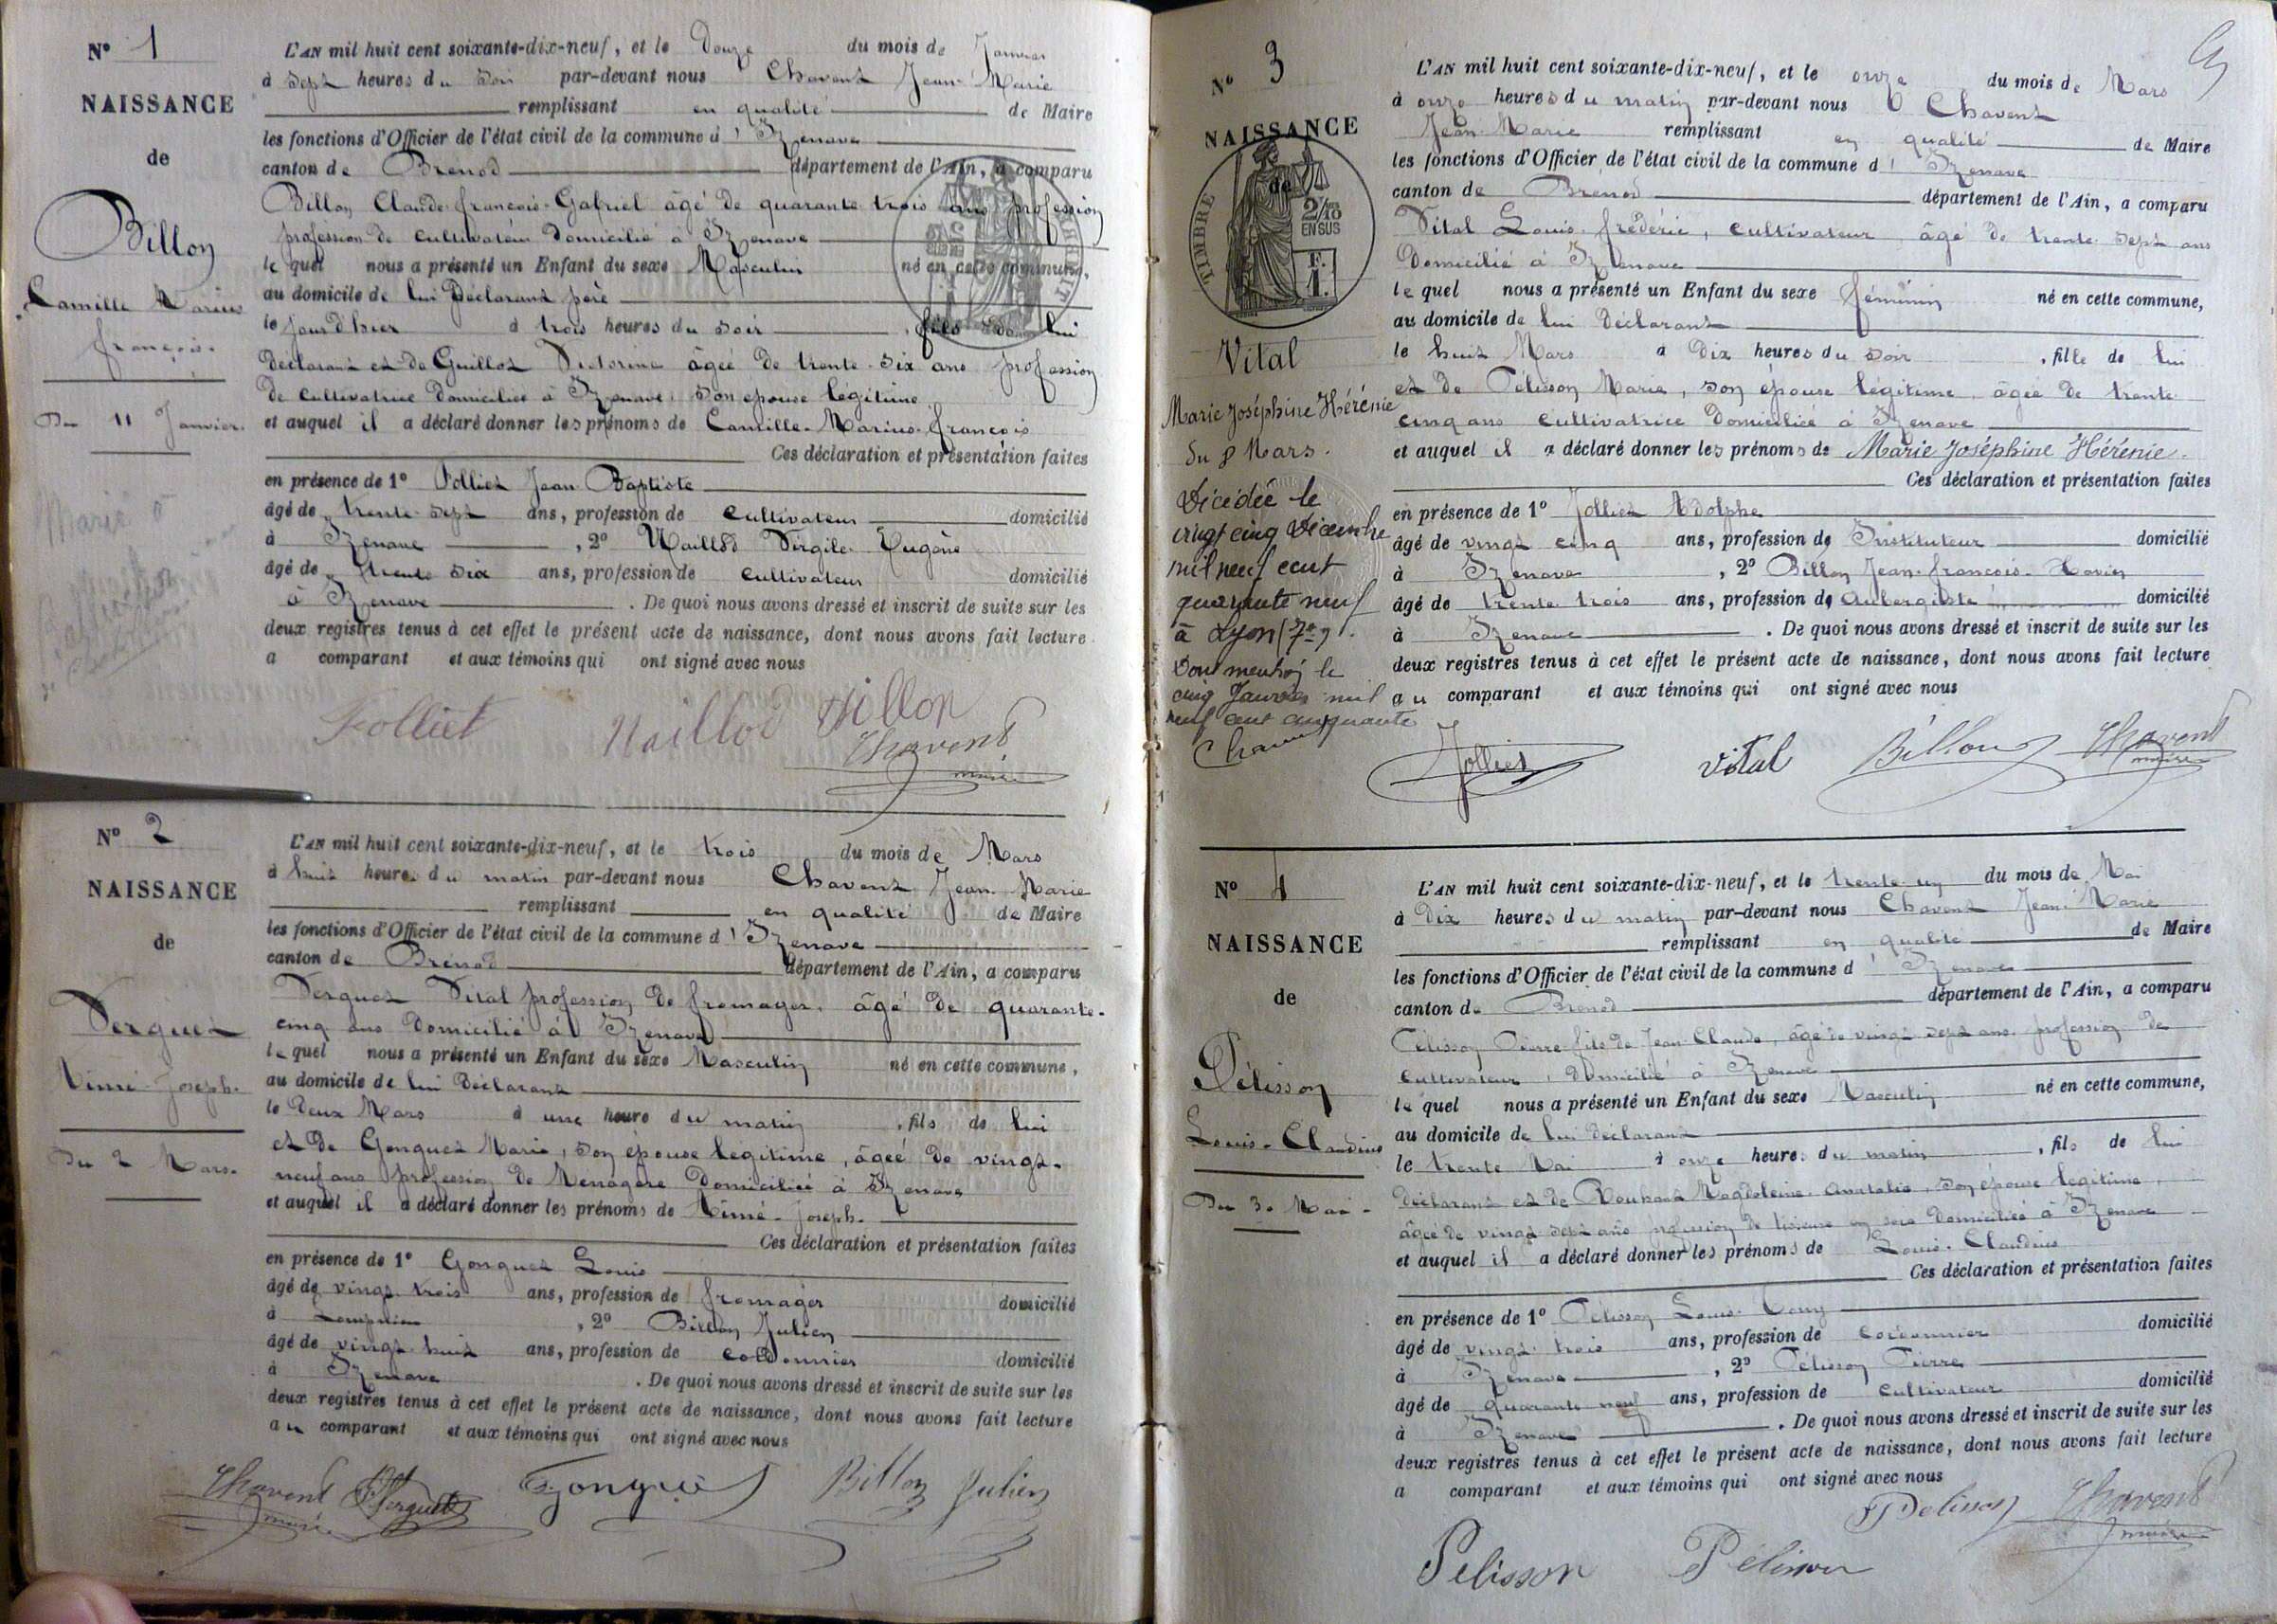 N° 1
NAISSANCE
de
Billon
Camille Marius
françois.
Du 11 Janvier.
L'AN mil huit cent soixante-dix-neuf, et le Douze du mois de Janvier
à sept heures du soir par-devant nous Chavent Jean-Marie
remplissant en qualité de Maire
les fonctions d'Officier de l'état civil de la commune d' Izenave
canton de Brénod département de l'Ain, a comparu
Billon Claude françois-Gabriel âgé de quarante trois ans profession
profession de cultivateur domicilié à Izenave
le quel nous a présenté un Enfant du sexe Masculin né en cette commune,
au domicile de lui Déclarant père
le jour d'hier à trois heures du soir , fils de lui
déclarant et de Guillot Victorine âgée de trente-six ans profession
de cultivatrice domiciliée à Izenave, son épouse légitime
et auquel il a déclaré donner les prénoms de Camille-Marius-françois
Ces déclaration et présentation faites
en présence de 1° Folliet Jean Baptiste
âgé de trente-sept ans, profession de cultivateur domicilié
à Izenave , 2° Maillod Virgile Eugène
âgé de trente six ans, profession de cultivateur domicilié
à Izenave . De quoi nous avons dressé et inscrit de suite sur les
deux registres tenus à cet effet le présent acte de naissance, dont nous avons fait lecture
a comparant et aux témoins qui ont signé avec nous
Folliet Maillod Billon
Chavent
maire
N° 2
NAISSANCE
de
Verguet
Aimé-Joseph.
Du 2 Mars.
L'AN mil huit cent soixante-dix-neuf, et le trois du mois de Mars
à huit heures du matin par-devant nous Chavent Jean-Marie
remplissant en qualité de Maire
les fonctions d'Officier de l'état civil de la commune d' Izenave
canton de Brénod département de l'Ain, a comparu
Verguet Vital profession de fromager, âgé de quarante-
cinq ans domicilié à Izenave
le quel nous a présenté un Enfant du sexe Masculin né en cette commune,
au domicile de lui Déclarant
le Deux Mars à une heure du matin , fils de lui
et de Gonguet Marie, son épouse légitime, âgée de vingt-
neuf ans profession de Ménagère domiciliée à Izenave
et auquel il a déclaré donner les prénoms de Aimé-Joseph.
Ces déclaration et présentation faites
en présence de 1° Gonguet Louis
âgé de vingt trois ans, profession de fromager domicilié
à , 2° Billon Julien
âgé de vingt huit ans, profession de cordonnier domicilié
à Izenave . De quoi nous avons dressé et inscrit de suite sur les
deux registres tenus à cet effet le présent acte de naissance, dont nous avons fait lecture
au comparant et aux témoins qui ont signé avec nous
Chavent Verguet Gonguet Billon Julien
maire
N° 3
NAISSANCE
de
TIMBRE
2/10
EN SUS
Vital
Marie Joséphine Hérénie
du 8 Mars.
Décédée le
vingt cinq Décembre
mil neuf cent
quarante neuf
à Lyon (7e).
Dont mention le
cinq Janvier mil
neuf cent cinquante
L'AN mil huit cent soixante-dix-neuf, et le onze du mois de Mars
à onze heures du matin par-devant nous Chavent
Jean-Marie remplissant en qualité de Maire
les fonctions d'Officier de l'état civil de la commune d' Izenave
canton de Brénod département de l'Ain, a comparu
Vital Louis-frédéric, cultivateur, âgé de trente-sept ans
domicilié à Izenave
le quel nous a présenté un Enfant du sexe féminin né en cette commune,
au domicile de lui déclarant
le huit Mars à Dix heures du soir , fille de lui
et de Pélisson Marie, son épouse légitime, âgée de trente
cinq ans cultivatrice domiciliée à Izenave
et auquel il a déclaré donner les prénoms de Marie Joséphine Hérénie.
Ces déclaration et présentation faites
en présence de 1° Jolliet Adolphe
âgé de vingt cinq ans, profession de Instituteur domicilié
à Izenave , 2° Billon Jean-françois-Xavier
âgé de trente trois ans, profession de Aubergiste domicilié
à Izenave . De quoi nous avons dressé et inscrit de suite sur les
deux registres tenus à cet effet le présent acte de naissance, dont nous avons fait lecture
au comparant et aux témoins qui ont signé avec nous
Jolliet Vital Billon Chavent
maire
N° 4
NAISSANCE
de
Pélisson
Louis-Claudius
Du 30 Mai.
L'AN mil huit cent soixante-dix-neuf, et le trente-un du mois de Mai
à Dix heures du matin par-devant nous Chavent Jean-Marie
remplissant en qualité de Maire
les fonctions d'Officier de l'état civil de la commune d' Izenave
canton de Brénod département de l'Ain, a comparu
Pélisson Pierre fils de Jean Claude, âgé de vingt sept ans profession de
cultivateur, domicilié à Izenave
le quel nous a présenté un Enfant du sexe Masculin né en cette commune,
au domicile de lui déclarant
le trente Mai à onze heures du matin , fils de lui
déclarant et de Magdeleine Anatalie, son épouse légitime,
âgée de vingt sept ans profession de tisseuse en soie domiciliée à Izenave
et auquel il a déclaré donner les prénoms de Louis-Claudius
Ces déclaration et présentation faites
en présence de 1° Pélisson Louis
âgé de vingt trois ans, profession de cordonnier domicilié
à Izenave , 2° Pélisson Pierre
âgé de quarante neuf ans, profession de cultivateur domicilié
à Izenave . De quoi nous avons dressé et inscrit de suite sur les
deux registres tenus à cet effet le présent acte de naissance, dont nous avons fait lecture
a comparant et aux témoins qui ont signé avec nous
Pelisson Chavent
maire
Pelisson Pélisson